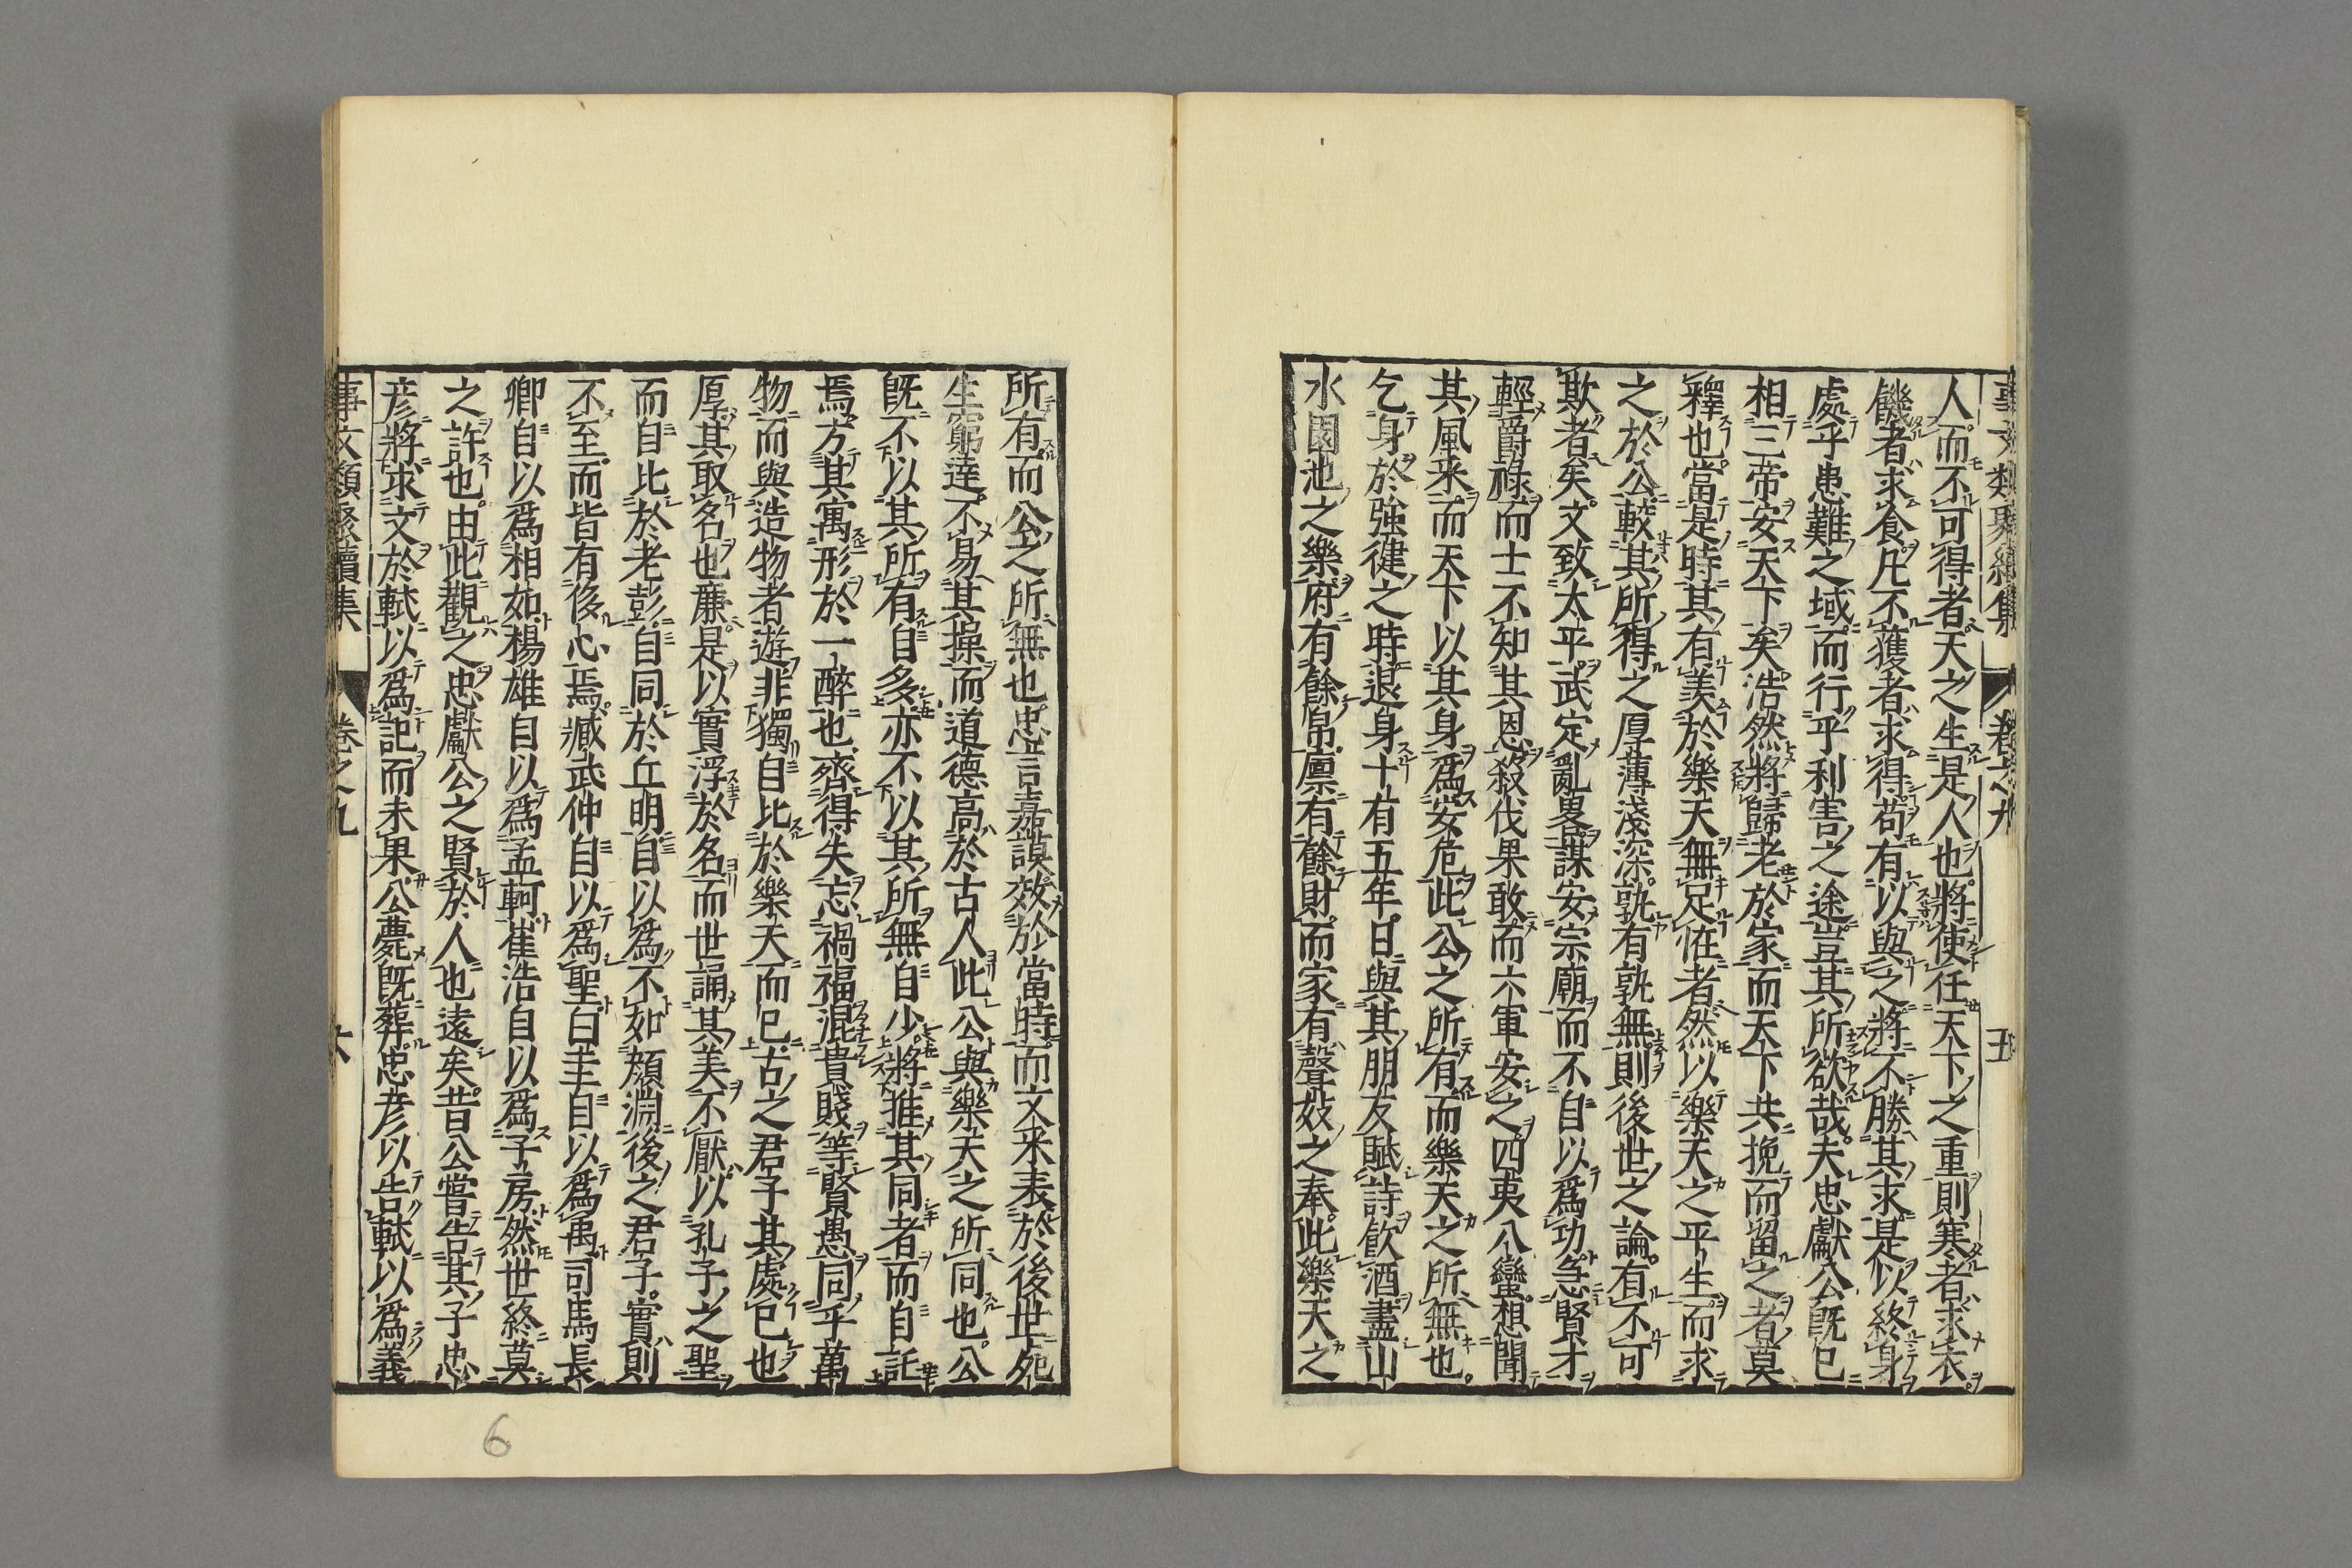 事文類聚續集 卷之九 五
人而不可得者天之生是人也將使任天下之重則寒者求衣
饑者求食凡不獲者求得苟有以與之將不勝其求是以終身
處乎患難之域而行乎利害之途豈其所欲哉夫忠獻公既已
相三帝安天下矣浩然將歸老於家而天下共挽而留之者莫
釋也當是時其有羡於樂天無足恠者然以樂天之平生而求
之於公較其所得之厚薄淺深孰有孰無則後世之論有不可
欺者矣文致太平武定亂畧謀安宗廟而不自以爲功急賢才
輕爵祿而士不知其恩殺伐果敢而六軍安之四夷八蠻想聞
其風采而天下以其身爲安危此公之所有而樂天之所無也
乞身於強健之時退身十有五年日與其朋友賦詩飲酒盡山
水園池之樂府有餘帛廩有餘財而家有聲妓之奉此樂天之
所有而公之所無也忠言嘉謨效於當時而文采表於後世死
生窮達不易其操而道德高於古人此公與樂天之所同也公
既不以其所有自多亦不以其所無自少將推其同者而自託
焉方其寓形於一醉也齊得失忘禍福混貴賤等賢愚同乎萬
物而與造物者遊非獨自比於樂天而已古之君子其處已也
厚其取名也廉是以實浮於名而世誦其美不厭以孔子之聖
而自比於老彭自同於丘明自以爲不如顏淵後之君子實則
不至而皆有侈心焉臧武仲自以爲聖白圭自以爲禹司馬長
卿自以爲相如楊雄自以爲孟軻崔浩自以爲子房然世終莫
之許也由此觀之忠獻公之賢於人也遠矣昔公嘗告其子忠
彥將求文於軾以爲記而未果公薨既葬忠彥以告軾以爲義
事文類聚續集 卷之九 六
6